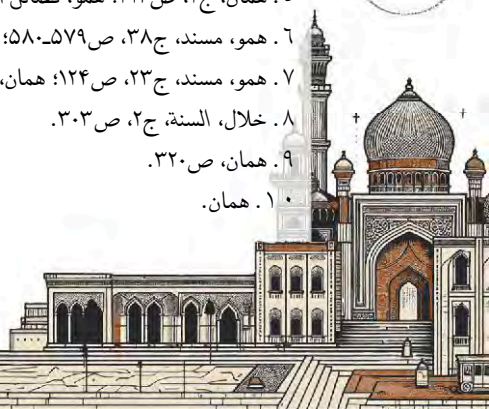 ۶. همو، مسند، ج۳۸، ص۵۷۹ـ۵۸۰؛
۷. همو، مسند، ج۲۳، ص۱۲۴؛ همان،
۸. خلال، السنة، ج۲، ص۳۰۳.
۹. همان، ص۳۲۰.
۱۰. همان.